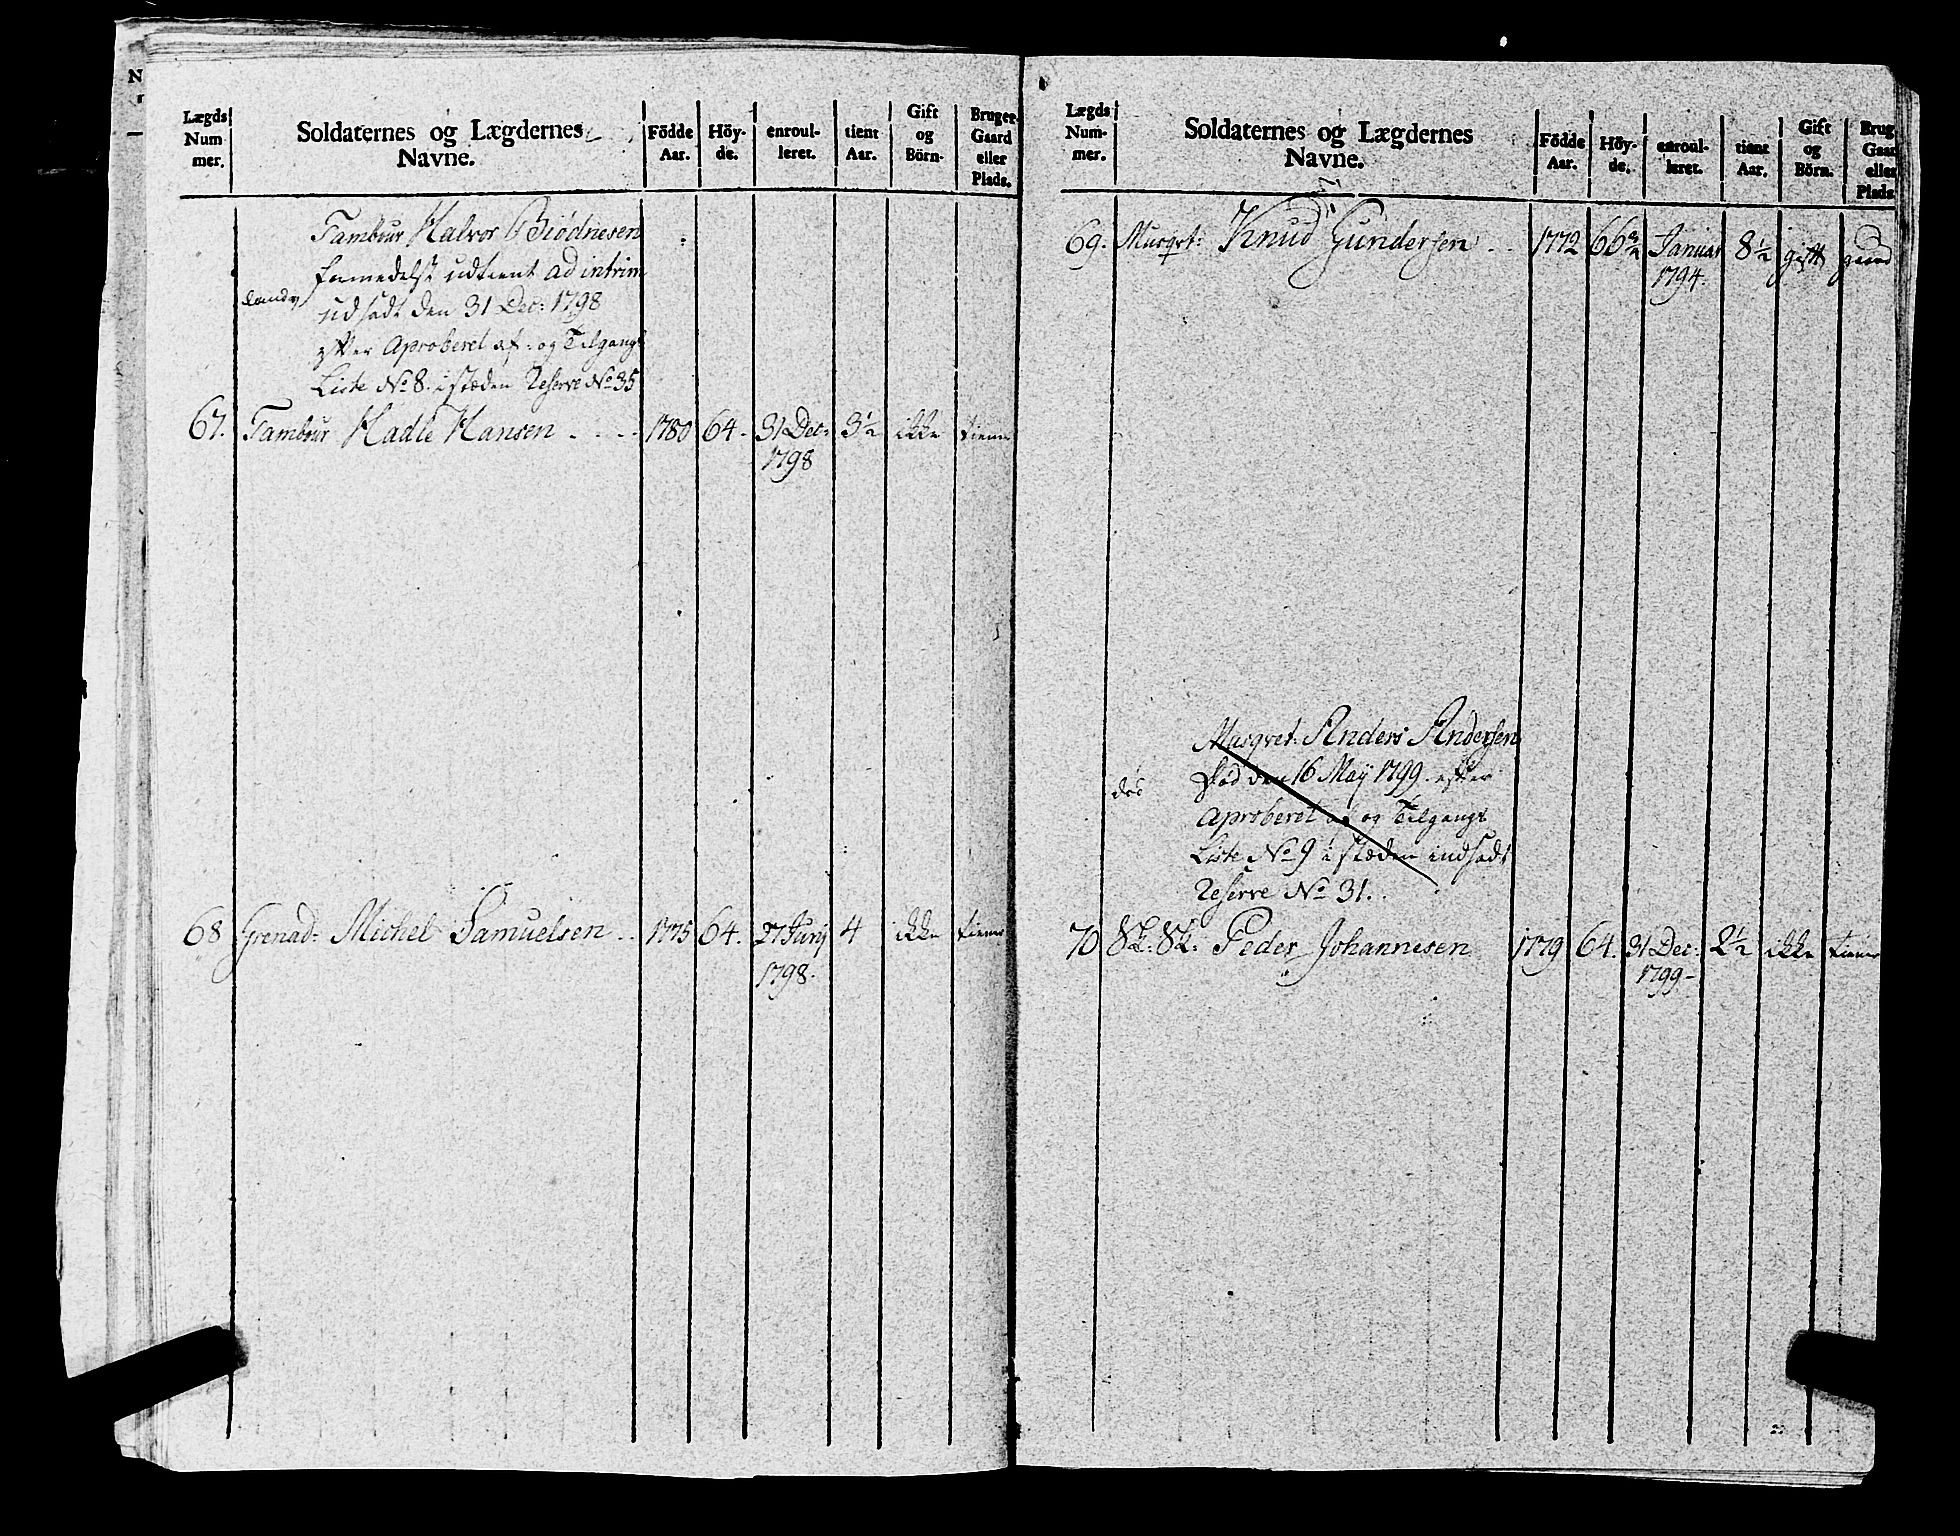 Lægds Num mer. | Soldaternes og Lægdernes Navne. | Födde Aar. | Höy- de. | enroul- leret. | tient Aar. | Gift og Börn. | Bruger Gaard eller Plads.
Tambur Halvor Biödnesen
formedelst udtient ad intrim
udsadt den 31 Dec: 1798
efter Aproberet af- og Tilgangs
Liste No 8. i stæden Reserve No 35
67. Tambur Hadle Hansen 1780 64. 31 Dec: 1798 3½ ikke tiener
68 Grenad: Michel Samuelsen 1775 64. 27 Junÿ 1798. 4 ikke tiener
Lægds Num- mer. | Soldaternes og Lægdernes Navne. | Födde Aar. | Höy- de. | enroul- leret. | tient Aar. | Gift og Börn. | Brug Gaar eller Plads
69. Musqvt: Knud Gundersen 1772 66¾ Januar 1794. 8½ gift gaard
Musqvet: Anders Andersen
död den 16 Maÿ 1799. efter
Aproberet af og Tilgangs
Liste No 9 i stæden indsadt
Reserve No 31.
70 Sk: Sk: Peder Johannesen 1779 64. 31 Dec: 1799- 2½ ikke tiener